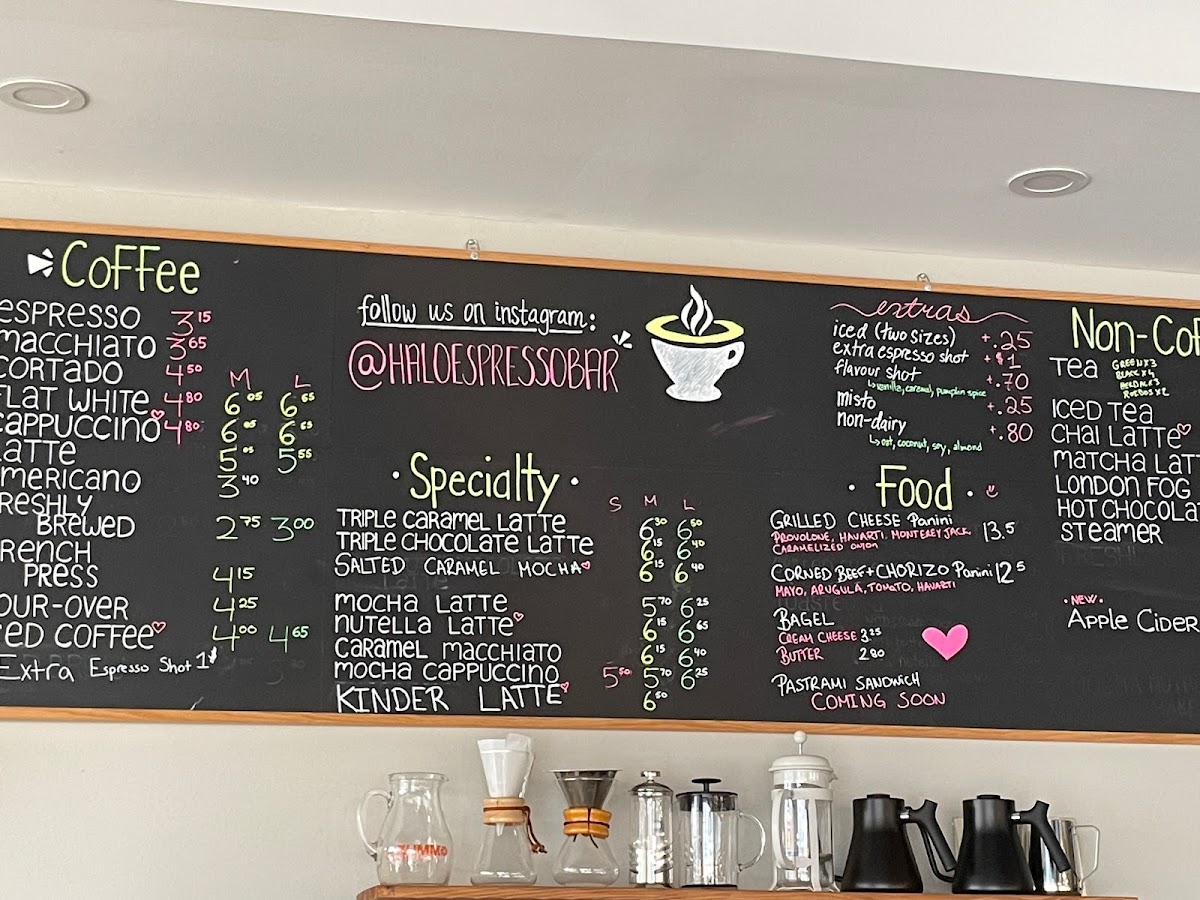 Coffee
ESPRESSO 3.15
MACCHIATO 3.65
CORTADO 4.50
M L
FLAT WHITE 4.80 6.05 6.65
CAPPUCCINO 4.80 6.05 6.65
LATTE 5.05 5.55
AMERICANO 3.40
FRESHLY
BREWED 2.75 3.00
FRENCH
PRESS 4.15
POUR-OVER 4.25
ICED COFFEE 4.00 4.65
Extra Espresso Shot 1
follow us on instagram:
@HALOESPRESSOBAR
Specialty
S M L
TRIPLE CARAMEL LATTE 6.50
TRIPLE CHOCOLATE LATTE 6.15 6.40
SALTED CARAMEL MOCHA 6.15 6.40
MOCHA LATTE 5.70 6.25
NUTELLA LATTE 6.15 6.65
CARAMEL MACCHIATO 6.15 6.40
MOCHA CAPPUCCINO 5.50 5.70 6.25
KINDER LATTE 6.50
extras
iced (two sizes) +.25
extra espresso shot +$1
flavour shot +.70
vanilla, caramel, pumpkin spice
misto +.25
non-dairy +.80
oat, coconut, soy, almond
Food
GRILLED CHEESE Panini 13.5
PROVOLONE, HAVARTI, MONTEREY JACK
CARAMELIZED ONION
CORNED BEEF+CHORIZO Panini 12.5
MAYO, ARUGULA, TOMATO, HAVARTI
BAGEL
CREAM CHEESE 3.25
BUTTER 2.90
PASTRAMI SANDWICH
COMING SOON
Non-Cof
TEA GREEN x3
BLACK x4
HERBAL x3
ROOIBOS x2
ICED TEA
CHAI LATTE
MATCHA LATT
LONDON FOG
HOT CHOCOLA
STEAMER
• NEW •
Apple Cider
ZUMMO